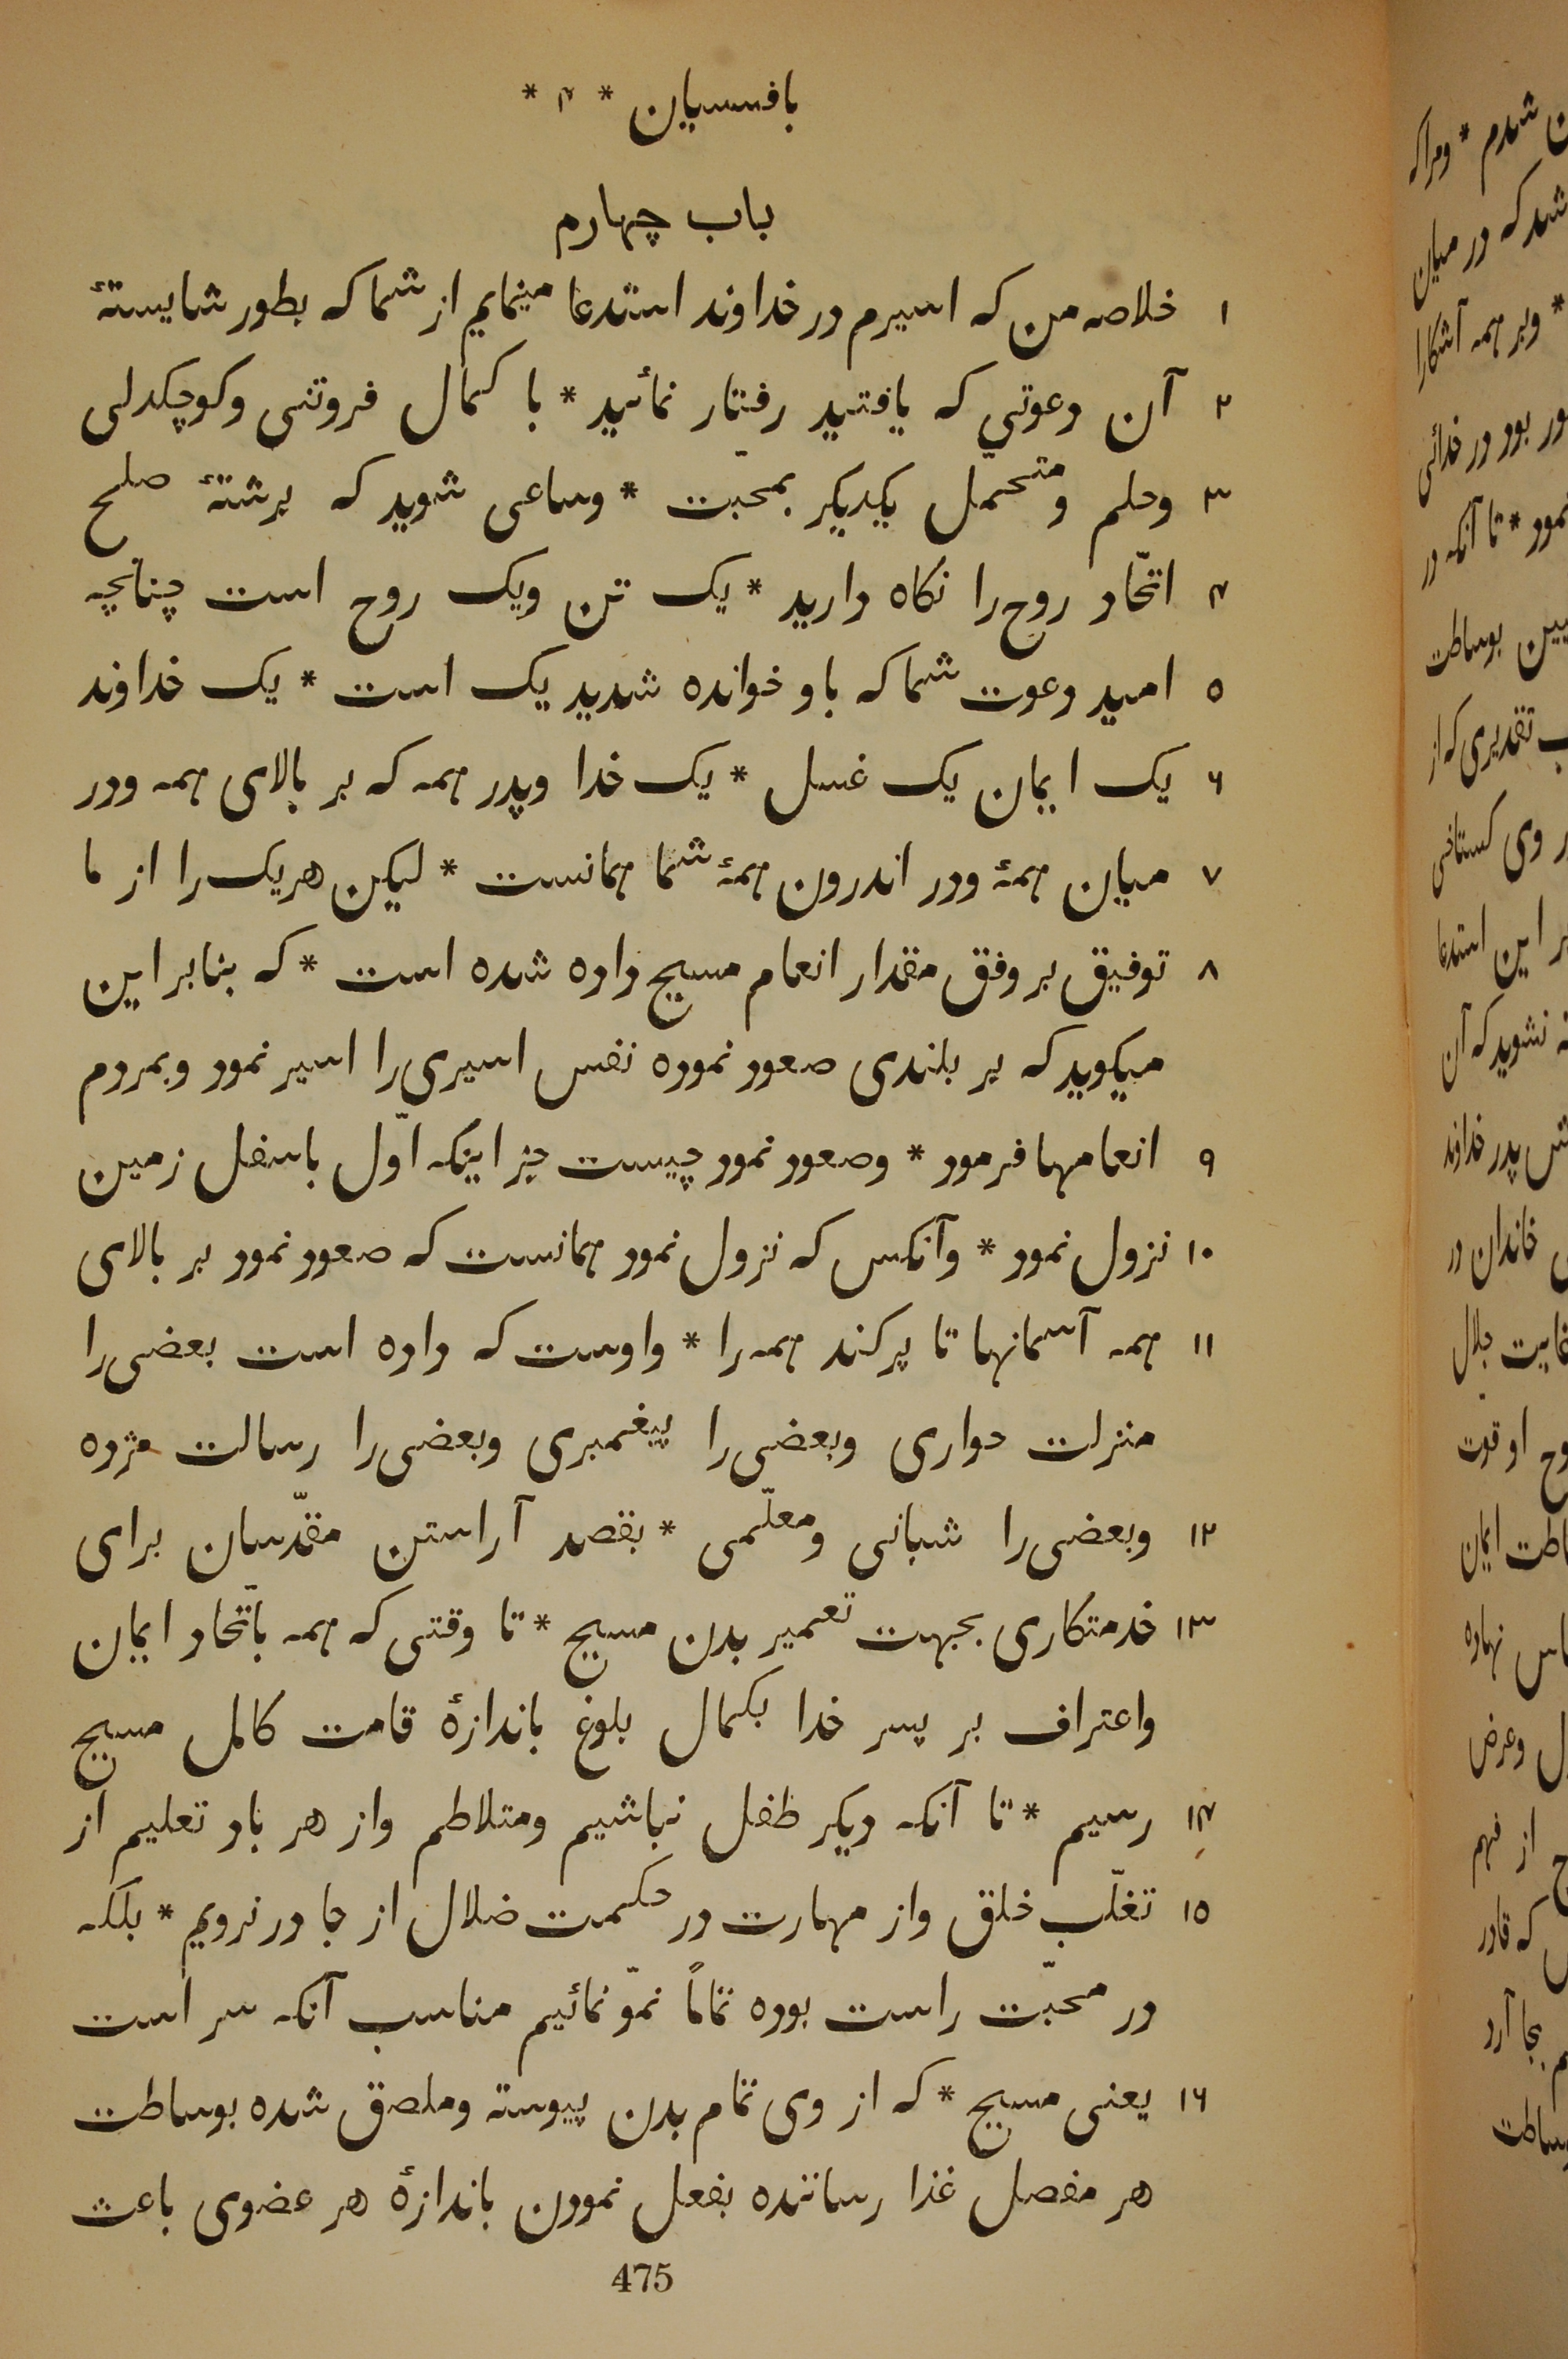 بافسسیان * ۴ *
باب چهارم
۱ خلاصه من که اسیرم در خداوند استدعا مینمایم از شما که بطور شایستهٔ
۲ آن دعوتي که یافتید رفتار نمائید * با کمال فروتنی وکوچکدلی
۳ وحلم ومتحمّل یکدیکر بمحبّت * وساعی شوید که برشتهٔ صلح
۴ اتّحاد روح را نکاه دارید * یک تن ویک روح است چنانچه
۵ امید دعوت شما که باو خوانده شدید یک است * یک خداوند
۶ یک ایمان یک غسل * یک خدا وپدر همه که بر بالای همه ودر
۷ میان همهٔ ودر اندرون همهٔ شما همانست * لیکن هریک را از ما
۸ توفیق بر وفق مقدار انعام مسیح داده شده است * که بنابر این
میکوید که بر بلندی صعود نموده نفس اسیری را اسیر نمود وبمردم
۹ انعامها فرمود * وصعود نمود چیست جز اینکه اوّل باسفل زمین
۱۰ نزول نمود * وآنکس که نزول نمود همانست که صعود نمود بر بالای
۱۱ همه آسمانها تا پر کند همه را * واوست که داده است بعضی را
منزلت حواری وبعضی را پیغمبری وبعضی را رسالت مژده
۱۲ وبعضی را شبانی ومعلّمی * بقصد آراستن مقدّسان برای
۱۳ خدمتکاری بجهت تعمیر بدن مسیح * تا وقتی که همه باتّحاد ایمان
واعتراف بر پسر خدا بکمال بلوغ باندازهٔ قامت کامل مسیح
۱۴ رسیم * تا آنکه دیکر طفل نباشیم ومتلاطم واز هر باد تعلیم از
۱۵ تغلّب خلق واز مهارت در حکمت ضلال از جا در نرویم * بلکه
در محبّت راست بوده تماماً نموّ نمائیم مناسب آنکه سر است
۱۶ یعنی مسیح * که از وی تمام بدن پیوسته وملصق شده بوساطت
هر مفصل غذا رساننده بفعل نمودن باندازهٔ هر عضوی باعث
475